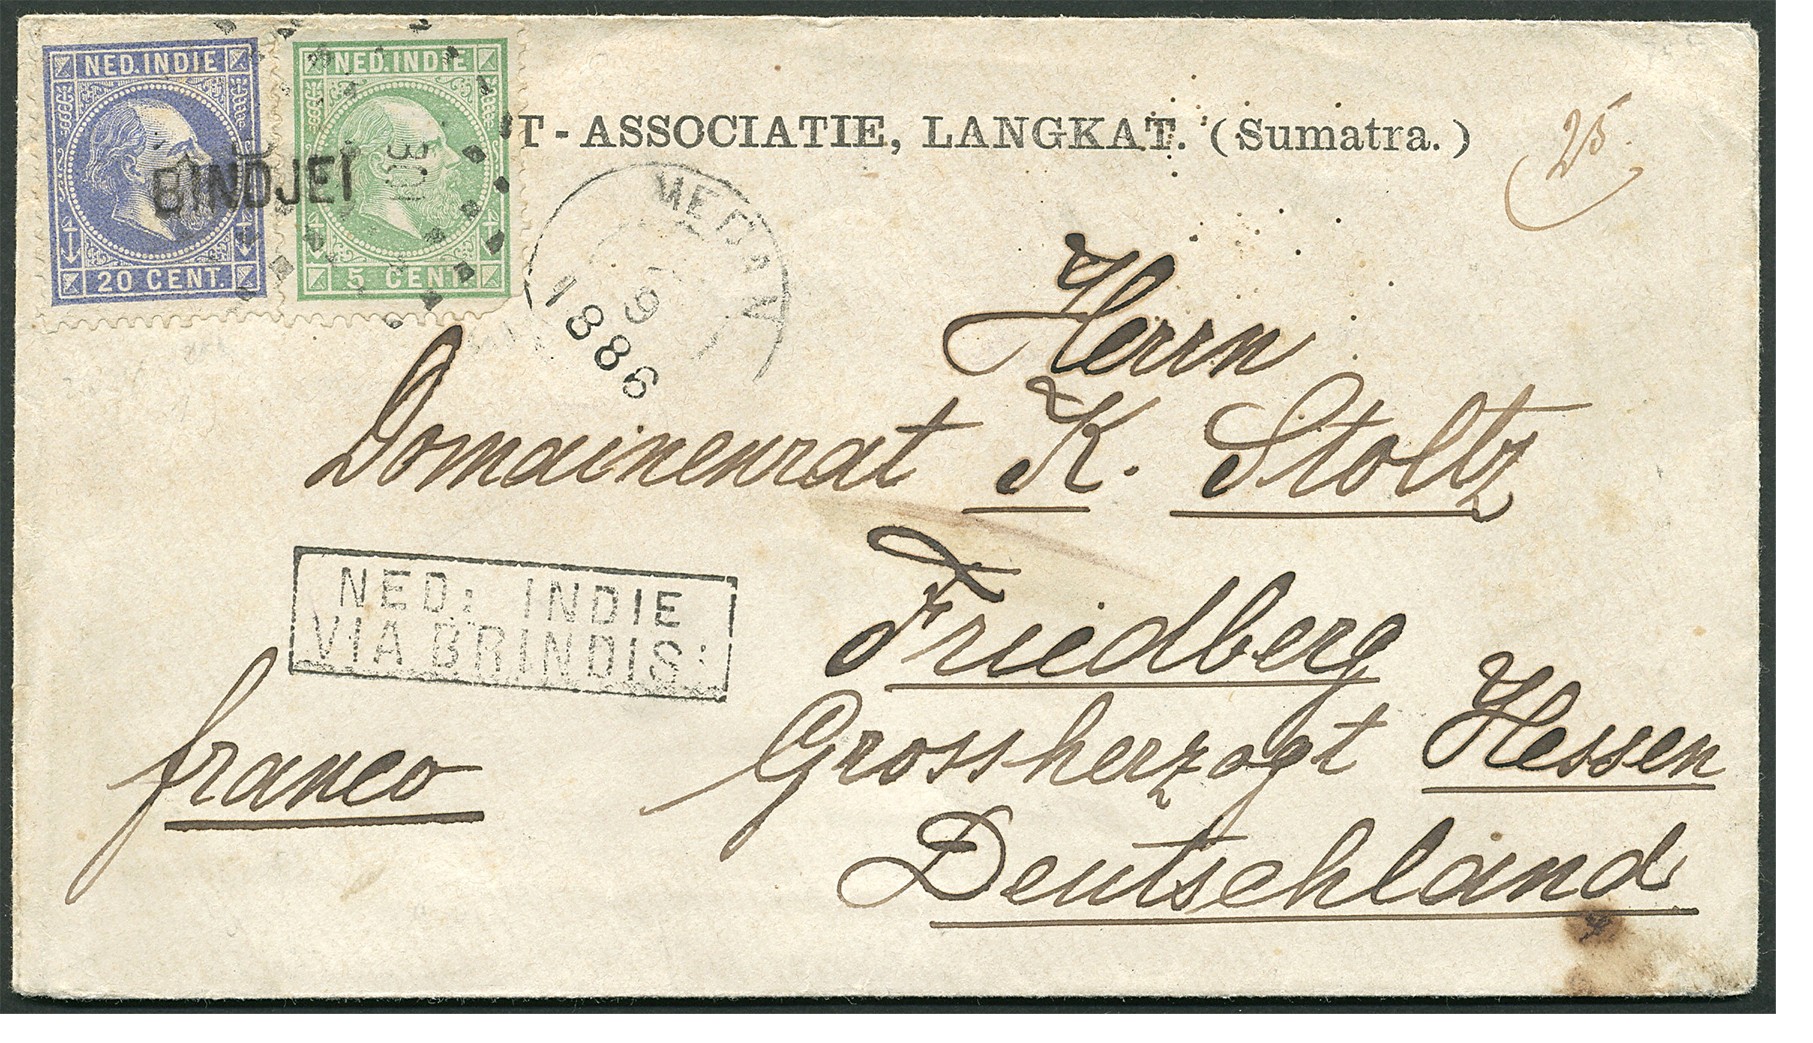 NED. INDIE
20 CENT.
NED. INDIE
5 CENT.
BINDJEI
T - ASSOCIATIE, LANGKAT. (Sumatra.)
25
MEDAN
9
1886
Herrn
Domainenrat K. Stoltz
NED: INDIE
VIA BRINDIS:
Friedberg
franco
Grossherzogt Hessen
Deutschland